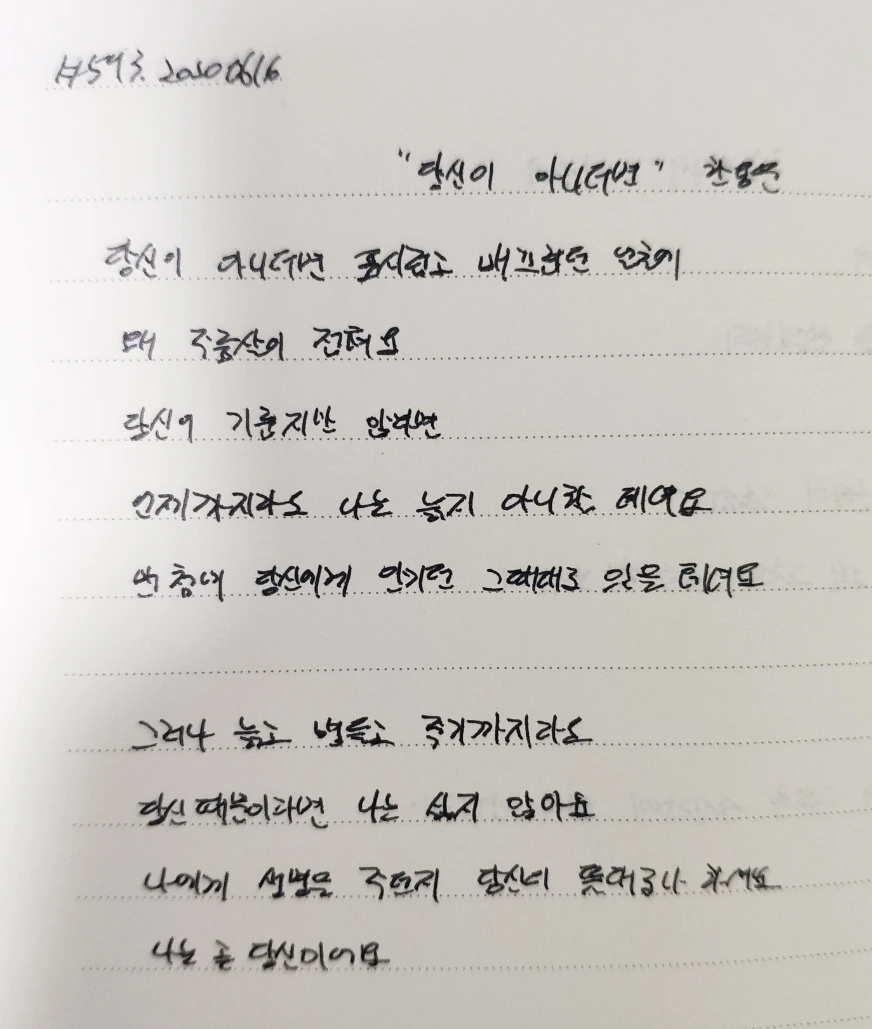 #593. 20200616
"당신이 아니더면" 한용운
당신이 아니더면 포시럽고 매끄럽던 얼굴이
왜 주름살이 접혀요
당신이 기룹지만 않더면
언제까지라도 나는 늙지 아니할 테여요
맨 첨에 당신에게 안기던 그때대로 있을 테여요
그러나 늙고 병들고 죽기까지라도
당신 때문이라면 나는 싫지 않아요
나에게 생명을 주던지 당신의 뜻대로나 하셔요
나는 곧 당신이어요